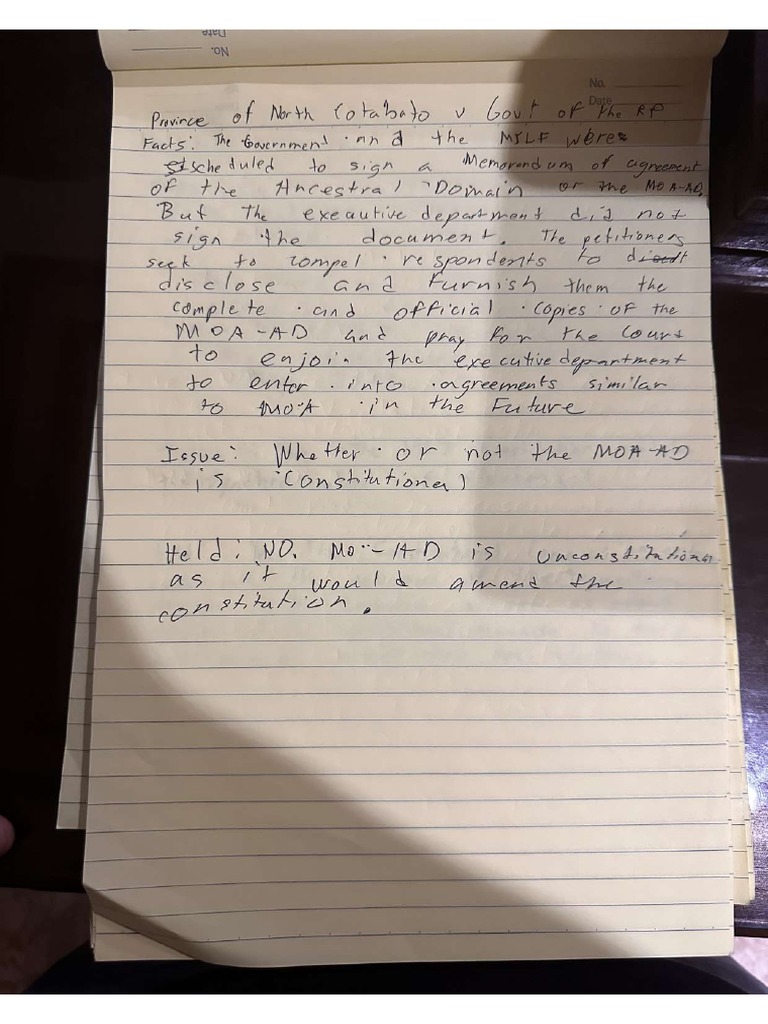 No.
Date
No.
Date
Province of North Cotabato v Govt of the RP
Facts: The Government and the MILF were
scheduled to sign a Memorandum of agreement
of the Ancestral Domain or the MOA-AD.
But The exeautive department did not
sign the document. The petitioners
seek to compel respondents to
disclose and furnish them the
complete and official copies of the
MOA-AD and pray for the Court
to enjoin the executive department
to enter into agreements similar
to MOA in the Future
Issue: Whetter or not the MOA-AD
is Constitutional
Held: NO. MO-AD is unconstitutional
as it would amend the
constitution.